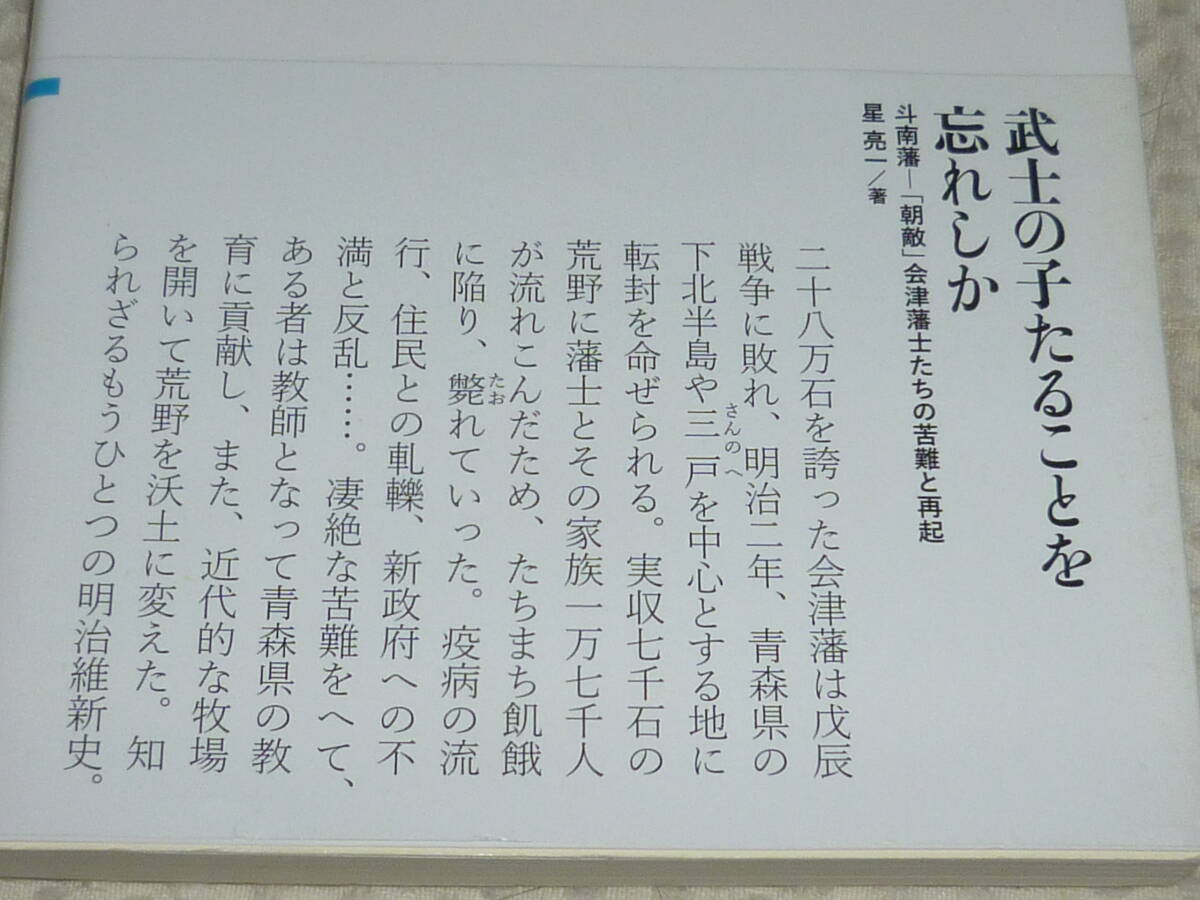 武士の子たることを
忘れしか
斗南藩―「朝敵」会津藩士たちの苦難と再起
星 亮一/著
二十八万石を誇った会津藩は戊辰
戦争に敗れ、明治二年、青森県の
下北半島や三戸を中心とする地に
さんのへ
転封を命ぜられる。実収七千石の
荒野に藩士とその家族一万七千人
が流れこんだため、たちまち飢餓
に陥り、斃れていった。疫病の流
たお
行、住民との軋轢、新政府への不
満と反乱……。凄絶な苦難をへて、
ある者は教師となって青森県の教
育に貢献し、また、近代的な牧場
を開いて荒野を沃土に変えた。知
られざるもうひとつの明治維新史。